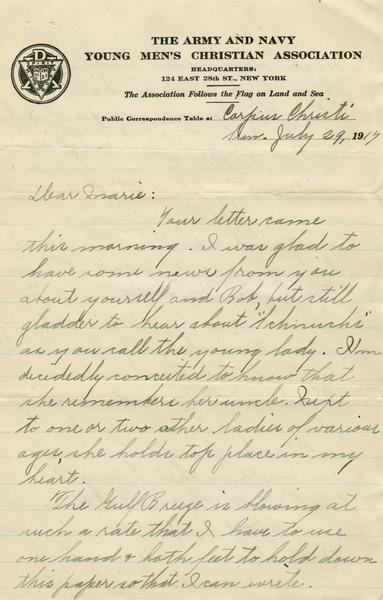 THE ARMY AND NAVY
YOUNG MEN'S CHRISTIAN ASSOCIATION
HEADQUARTERS:
124 EAST 28th ST., NEW YORK
The Association Follows the Flag on Land and Sea
Public Correspondence Table at Corpus Christi
Sun. July 29, 1917
Dear Marie:
Your letter came
this morning. I was glad to
have some news from you
about yourself and Bob, but still
gladder to hear about "Ichinichi"
as you call the young lady. I'm
decidedly conceited to know that
she remembers her uncle. Next
to one or two other ladies of various
ages she holds top place in my
heart.
The Gulf Breeze is blowing at
such a rate that I have to use
one hand & both feet to hold down
this paper so that I can write.